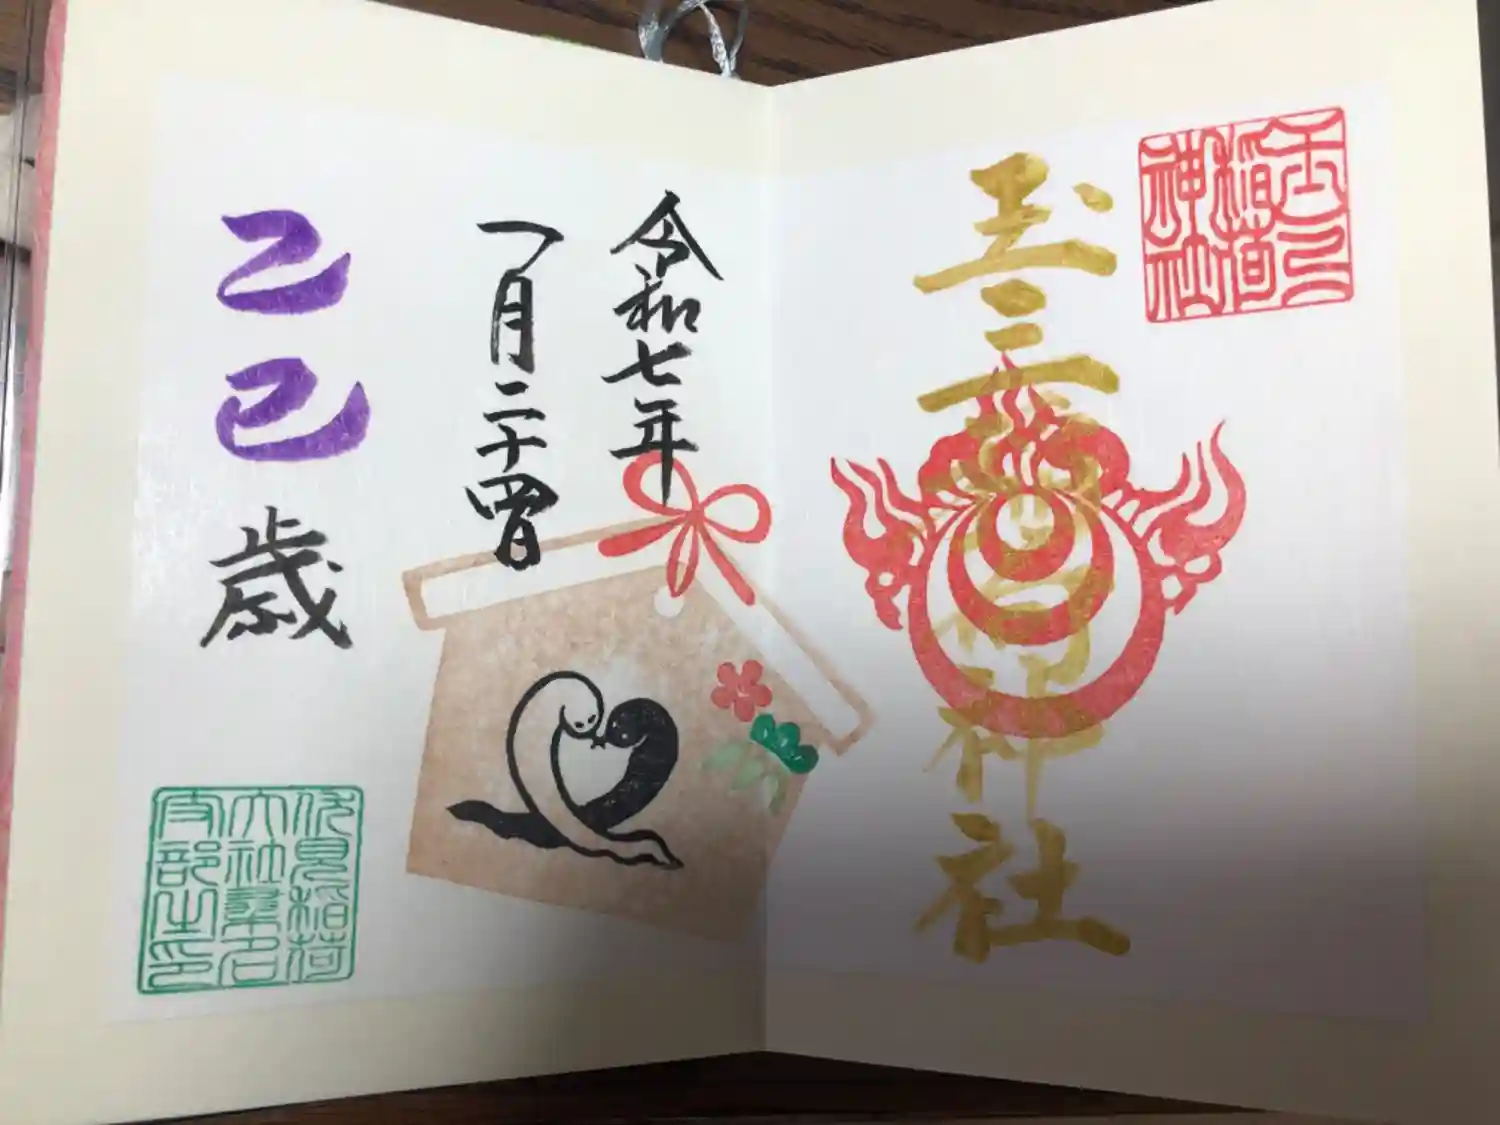 玉三
稲荷
神社
玉三稲荷神社
令和七年
一月二十四日
乙巳歳
伏見稲荷
大社桑名
部之印